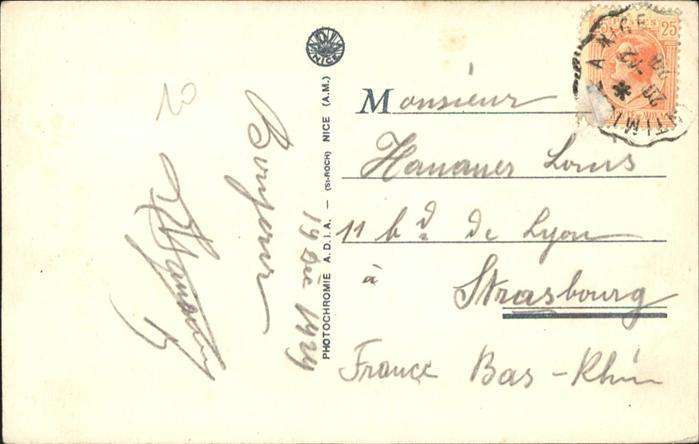 10
Bonjour
19 Déc 1924
PHOTOCHROMIE A.D.I.A. — (St-ROCH) NICE (A.M.)
NICE
Monsieur
Hanauer Louis
11 bd de Lyon
à
Strasbourg
France Bas-Rhin
25
A NICE
20 -12